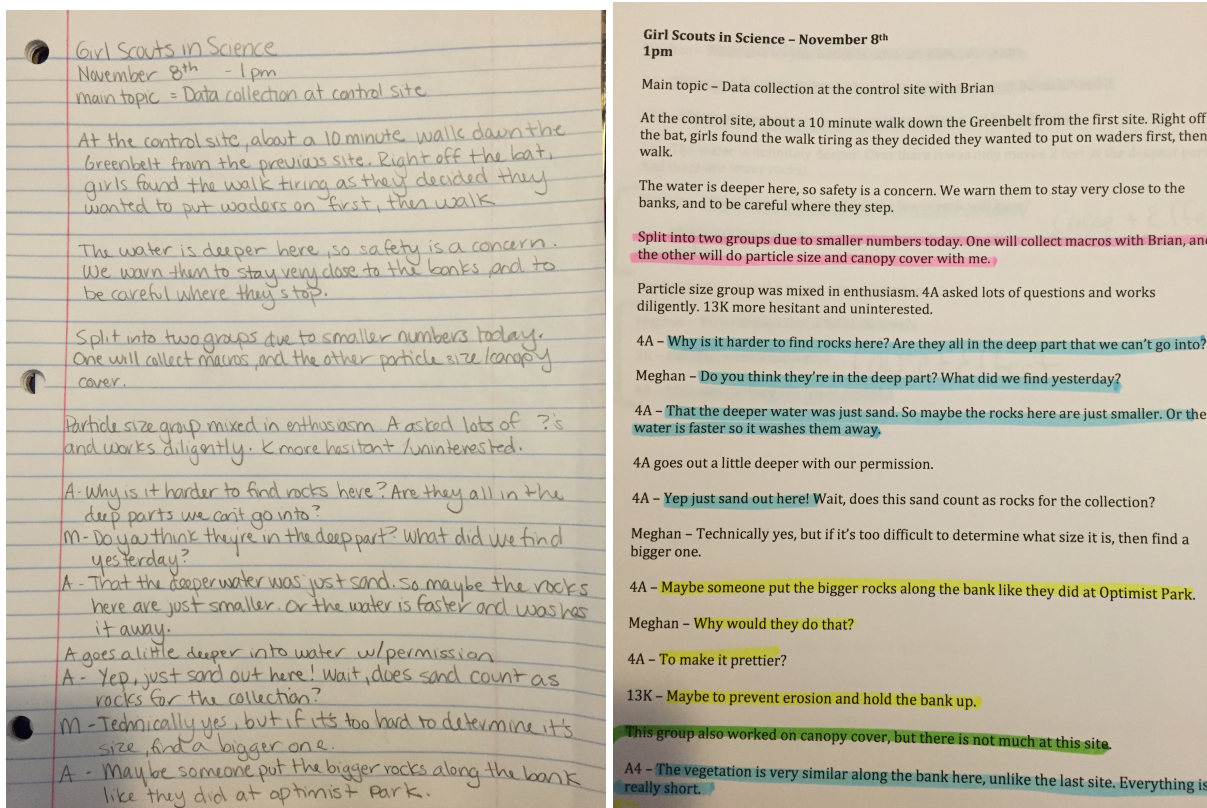 Girl Scouts in Science
November 8th - 1pm
main topic = Data collection at control site
At the control site, about a 10 minute walk down the
Greenbelt from the previous site. Right off the bat,
girls found the walk tiring as they decided they
wanted to put waders on first, then walk
The water is deeper here, so safety is a concern.
We warn them to stay very close to the banks, and to
be careful where they stop.
Split into two groups due to smaller numbers today.
One will collect macros, and the other particle size/canopy
cover.
Particle size group mixed in enthusiasm. A asked lots of ?'s
and works diligently. K more hesitant/uninterested.
A - Why is it harder to find rocks here? Are they all in the
deep parts we can't go into?
M - Do you think they're in the deep part? What did we find
yesterday?
A - That the deeper water was just sand. so maybe the rocks
here are just smaller. Or the water is faster and washes
it away.
A goes a little deeper into water w/permission
A - Yep, just sand out here! Wait, does sand count as
rocks for the collection?
M - Technically yes, but if it's too hard to determine it's
size, find a bigger one.
A - Maybe someone put the bigger rocks along the bank
like they did at optimist Park.
Girl Scouts in Science – November 8th
1pm
Main topic – Data collection at the control site with Brian
At the control site, about a 10 minute walk down the Greenbelt from the first site. Right off
the bat, girls found the walk tiring as they decided they wanted to put on waders first, then
walk.
The water is deeper here, so safety is a concern. We warn them to stay very close to the
banks, and to be careful where they step.
Split into two groups due to smaller numbers today. One will collect macros with Brian, and
the other will do particle size and canopy cover with me.
Particle size group was mixed in enthusiasm. 4A asked lots of questions and works
diligently. 13K more hesitant and uninterested.
4A – Why is it harder to find rocks here? Are they all in the deep part that we can't go into?
Meghan – Do you think they're in the deep part? What did we find yesterday?
4A – That the deeper water was just sand. So maybe the rocks here are just smaller. Or the
water is faster so it washes them away.
4A goes out a little deeper with our permission.
4A – Yep just sand out here! Wait, does this sand count as rocks for the collection?
Meghan – Technically yes, but if it's too difficult to determine what size it is, then find a
bigger one.
4A – Maybe someone put the bigger rocks along the bank like they did at Optimist Park.
Meghan – Why would they do that?
4A – To make it prettier?
13K – Maybe to prevent erosion and hold the bank up.
This group also worked on canopy cover, but there is not much at this site.
A4 – The vegetation is very similar along the bank here, unlike the last site. Everything is
really short.